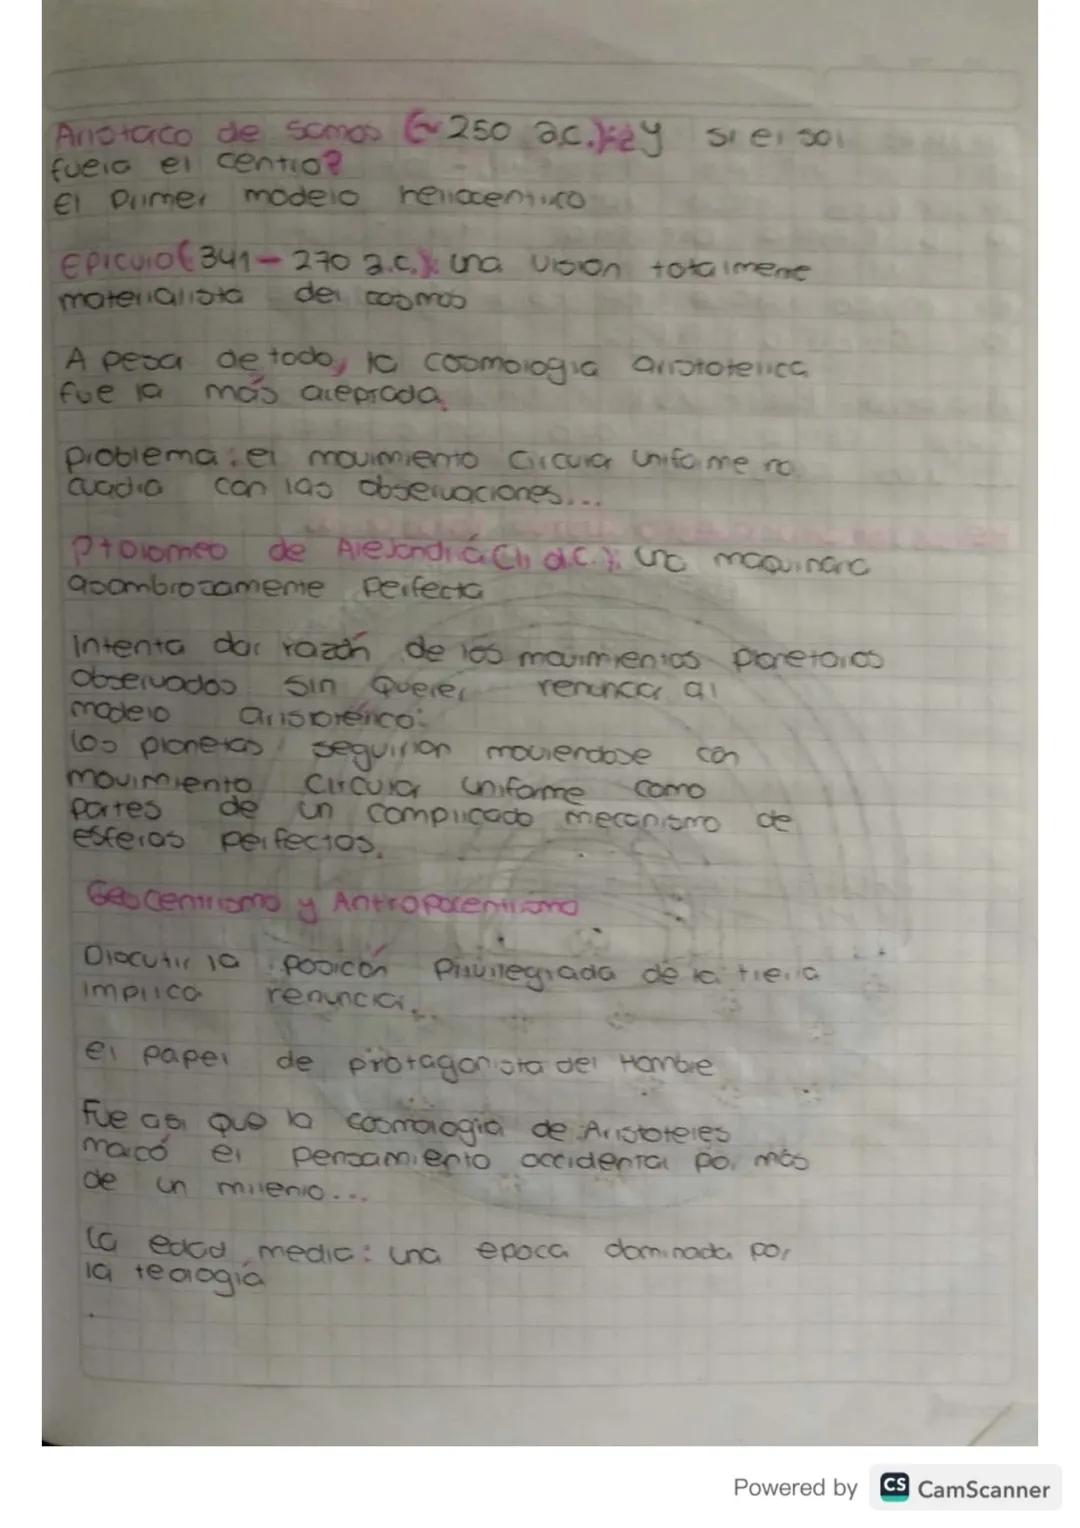 Aristarco de samos (~250 a.c.): ¿y si el sol
fuera el centro?
El primer modelo heliocentrico
Epicuro (341-270 a.c.): una vision totalmente
materialista del cosmos
A pesar de todo, la cosmologia aristotelica
fue la más aceptada.
problema: el movimiento circular uniforme no
cuadra con las observaciones...
Ptolomeo de Alejandriá (II d.C.): una maquinaria
asombrozamente perfecta
Intenta dar razón de los movimientos planetarios
observados sin querer renunciar al
modelo aristotélico:
los planetas seguirian moviendose con
movimiento circular uniforme como
partes de un complicado mecanismo de
esferas perfectas.
Geocentrismo y Antropocentrismo
Discutir la posición privilegiada de la tierra
implica renunciar...
el papel de protagonista del Hombre
Fue asi que la cosmologia de Aristoteles
marcó el pensamiento occidental por más
de un milenio...
La edad media: una epoca dominada por
la teología
Powered by CS CamScanner